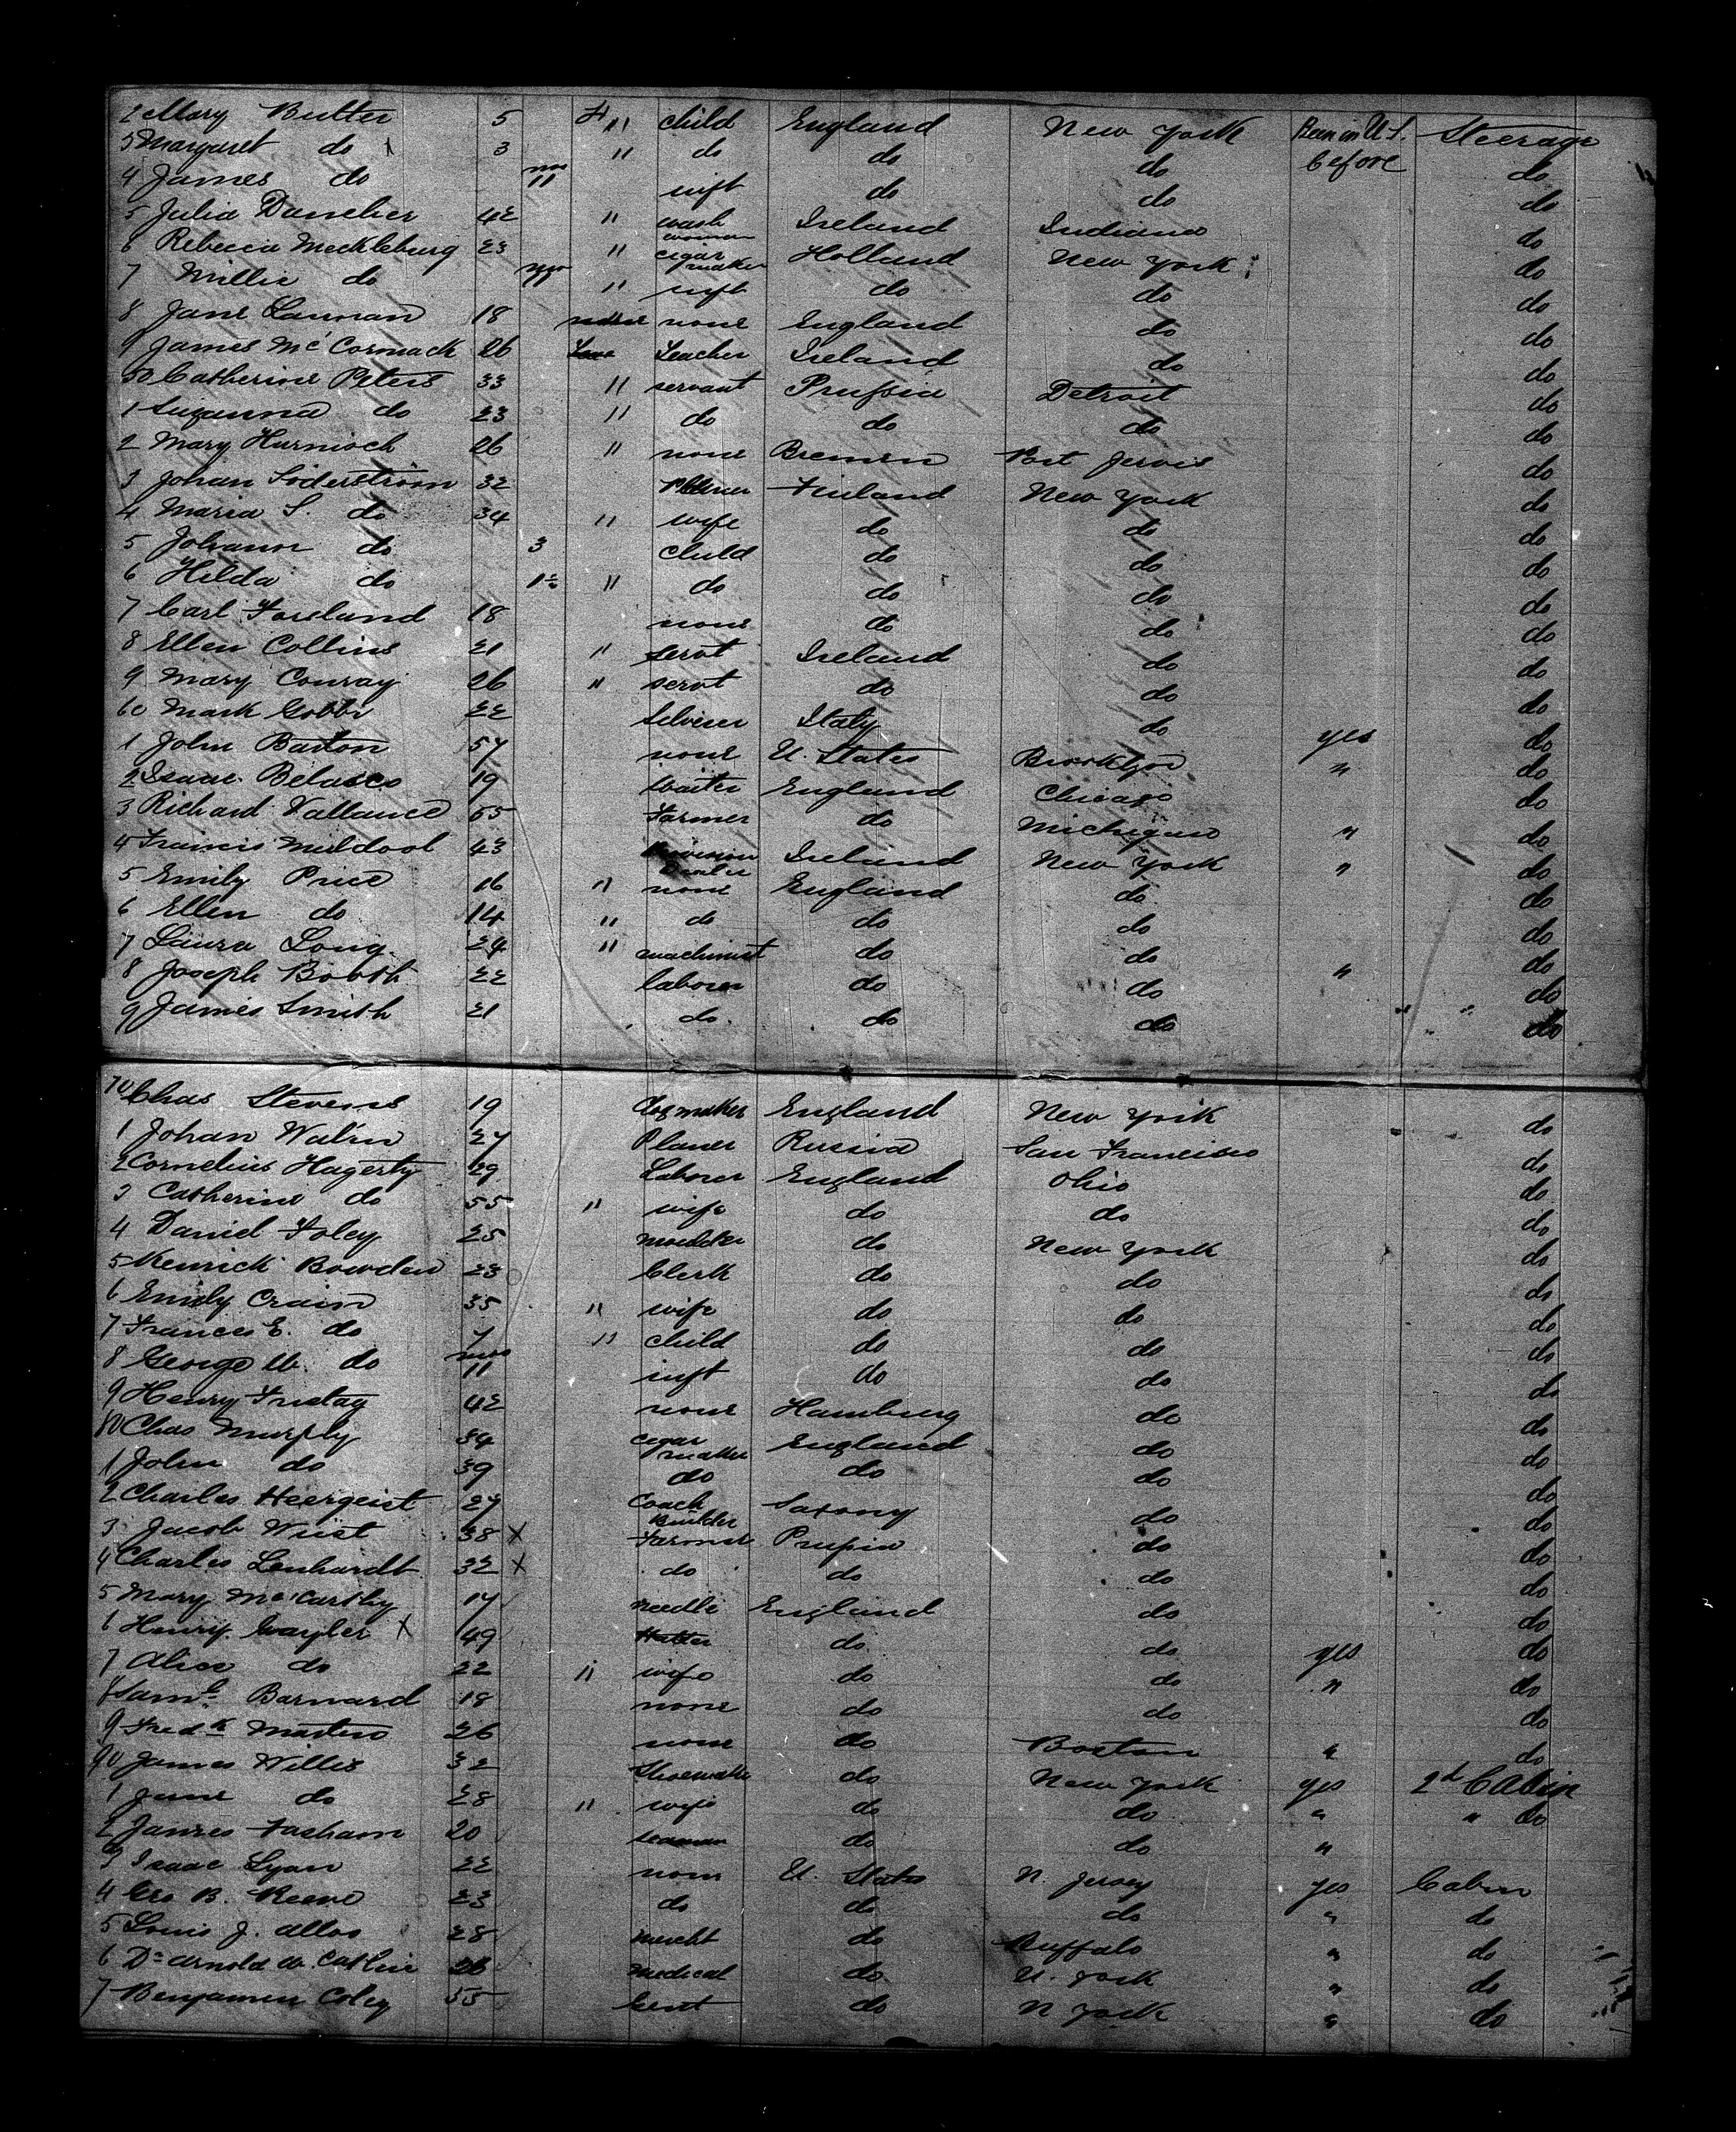 2 Mary Butter 5 F " child England New York Been in U.S. before Steerage
3 Margaret do 3 " do do do do
4 James do mos 11 inft do do do
5 Julia 42 " wash woman Ireland Indiana do
6 Rebecca Meckleburg 23 " cigar maker Holland New York do
7 Millie do mos 11 " inft do do do
8 Jane Lannan 18 none England do do
9 James McCormack 26 Teacher Ireland do do
50 Catherine Peters 33 " servant Prussia Detroit do
1 Suzanna do 23 " do do do do
2 Mary Hurnisch 26 " none Bremen Port Jervis do
3 Johan Söderström 32 Finland New York do
4 Maria S. do 34 " wife do do do
5 Johann do 3 child do do do
6 Hilda do " do do do do
7 Carl Forslund 18 none do do do
8 Ellen Collins 21 " servt Ireland do do
9 Mary Conray 26 " servt do do do
60 Mark Gobbi 22 Italy do do
1 John Barton 57 none U. States Brooklyn yes do
2 Isaac Belasco 19 Waiter England Chicago " do
3 Richard Vallance 65 Farmer do Michigan do
4 Francis Muldool 43 Provision Dealer Ireland New York " do
5 Emily Price 16 " none England do " do
6 Ellen do 14 " do do do do
7 Laura Long 24 " machinist do do do
8 Joseph Booth 22 laborer do do " do
9 James Smith 21 do do do do
70 Chas Stevens 19 England New York do
1 Johan Walin 27 Planer Russia San Francisco do
2 Cornelius Hagerty 29 Laborer England Ohio do
3 Catherine do 55 " wife do do do
4 Daniel Foley 25 moulder do New York do
5 Kenrick Bowden 23 Clerk do do do
6 Emily Crain 35 " wife do do do
7 Frances E. do 7 " child do do do
8 George W. do mos 11 inft do do do
9 Henry Fristag 42 none Hamburg do do
80 Chas Murphy 34 cigar maker England do do
1 John do 39 do do do do
2 Charles Heergeist 27 Coach Builder Saxony do do
3 Jacob Wüst 38 X Farmer Prussia do do
4 Charles Lenhardt 32 X do do do do
5 Mary McCarthy 17 needle England do do
6 Henry Wayler X 49 Hatter do do yes do
7 Alice do 22 " wife do do " do
8 Saml Barnard 18 none do do do
9 Fredk Masters 26 none do Boston " do
90 James Willis 32 Shoemaker do New York yes 2d Cabin
1 Jane do 28 " wife do do " " do
2 James Fasham 20 seaman do do "
3 Isaac Lyon 22 none U. States N. Jersey yes Cabin
4 Geo B. Reeve 23 do do do " do
5 Louis J. Allos 28 mercht do Buffalo " do
6 Dr Arnold W. Catlin 26 medical do N. York " do
7 Benjamin Coley 55 Gent do N York " do